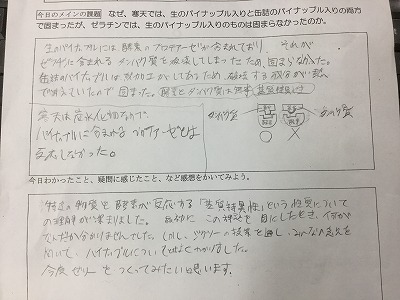 今日のメインの課題 なぜ、寒天では、生のパイナップル入りと缶詰のパイナップル入りの両方
で固まったが、ゼラチンでは、生のパイナップル入りのものは固まらなかったのか。
生のパイナップルには酵素のプロテアーゼが含まれており、それが
ゼラチンに含まれるタンパク質を破壊してしまったため、固まらなかった。
缶詰のパイナップルは 加工 してあったため、破壊する成分が
固まった。 酵素とタンパク質は 基質特異性
寒天は炭水化物なので、
パイナップルに含まれるプロテアーゼとは
反応しなかった。
タンパク質
タンパク質
今日わかったこと、疑問に感じたこと、など感想をかいてみよう。
特定の物質と酵素が反応する「基質特異性」という性質について
の理解が深まりました。最初に この神秘を目にしたとき、何が
なんだか分かりませんでした。しかし、 の授業を通し、みんなの意見を
聞いて、パイナップルについ よくわかりました。
今度ゼリーを つくってみたいと思います。